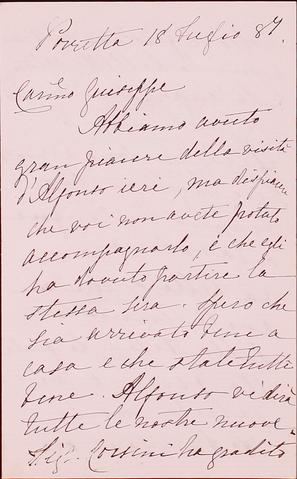 Porretta 18 Luglio 87.
Carmo Giuseppe
Abbiamo avuto
gran piacere della visita
d'Alfonso ieri, ma dispiacere
che voi non avete potuto
accompagnarlo, e che egli
ha dovuto partire la
stessa sera. Spero che
sia arrivato bene a
casa e che state tutti
bene. Alfonso vi dirà
tutte le nostre nuove.
Sig. Corsini ha gradito